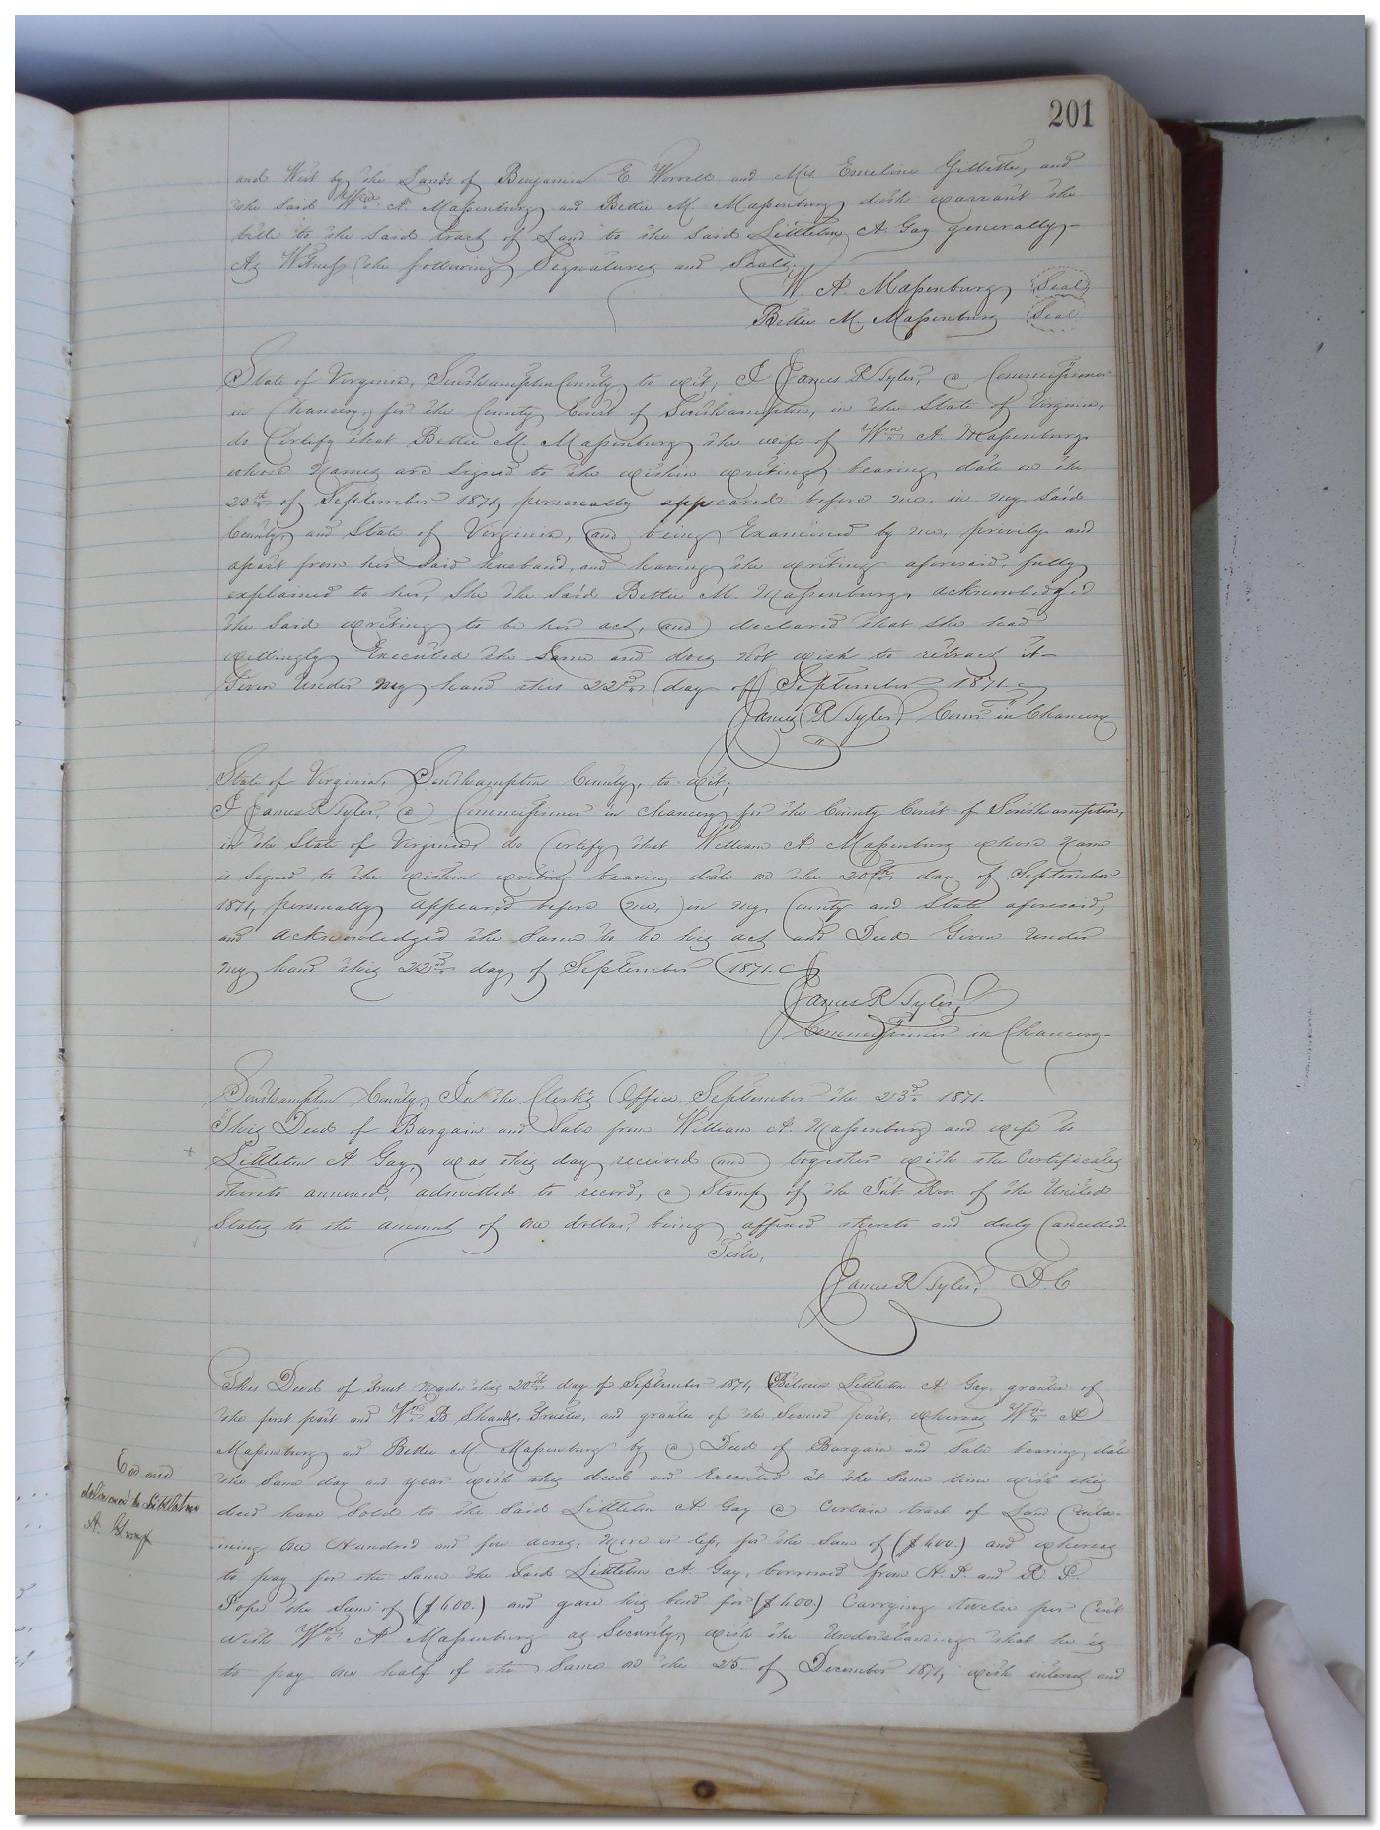 201
and West by the Lands of Benjamin E Worrell and Mrs Emeline Gillette, and
the said Wm A. Massenburg and Bettie M. Massenburg doth warrant the
title to the said tract of Land to the said Littleton A. Gay generally,
As Witness the following Signatures and Seals,
W. A. Massenburg Seal
Bettie M. Massenburg Seal
State of Virginia, Southampton County, to wit, I James R Tyler, a Commissioner
in Chancery, for the County Court of Southampton, in the State of Virginia,
do Certify that Bettie M. Massenburg the wife of Wm A. Massenburg
whose Names are signed to the within writing bearing date on the
20th of September 1871, personally appeared before me in my said
County and State of Virginia, and being Examined by me, privily and
apart from her said husband, and having the writing aforesaid, fully
explained to her, She the said Bettie M. Massenburg, acknowledged
the said writing to be her act, and declared that she had
willingly Executed the Same and does not wish to retract it
Given Under my hand this 22nd day of September 1871.
James R Tyler, Comr in Chancery
State of Virginia, Southampton County, to wit;
I James R Tyler, a Commissioner in Chancery for the County Court of Southampton,
in the State of Virginia do Certify that William A Massenburg whose name
is signed to the within writing bearing date on the 20th day of September
1871, personally appeared before me, in my County and State aforesaid,
and acknowledged the Same to be his act and Deed Given Under
my hand this 22nd day of September 1871.
James R Tyler,
Commissioner in Chancery
Southampton County, In the Clerk's Office September the 23rd 1871.
This Deed of Bargain and Sale from William A. Massenburg and wife to
Littleton A Gay, was this day received and together with the Certificates
thereto annexed, admitted to record, a Stamp of the Int Rev. of the United
States to the amount of one dollar, being affixed thereto and duly Cancelled.
Teste,
James R Tyler, D.C
This Deed of Trust made this 20th day of September 1871, Between Littleton A. Gay, grantor of
the first part and Wm B Shands, Trustee, and grantee of the Second part, whereas Wm A
Massenburg and Bettie M Massenburg by a Deed of Bargain and Sale bearing date
the Same day and year with this deed and Executed at the Same time with this
deed have Sold to the Said Littleton A Gay a Certain tract of Land Contai-
ning One Hundred and five acres, more or less, for the Sum of ($400.) and whereas
to pay for the Same the Said Littleton A. Gay, borrowed from H. P. and R. S.
Pope the Sum of ($400.) and gave his bond for ($400.) Carrying twelve per Cent
with Wm A Massenburg as Security, with the Understanding that he is
to pay one half of the Same on the 25. of December 1871, with interest and
delivered to Littleton
A.